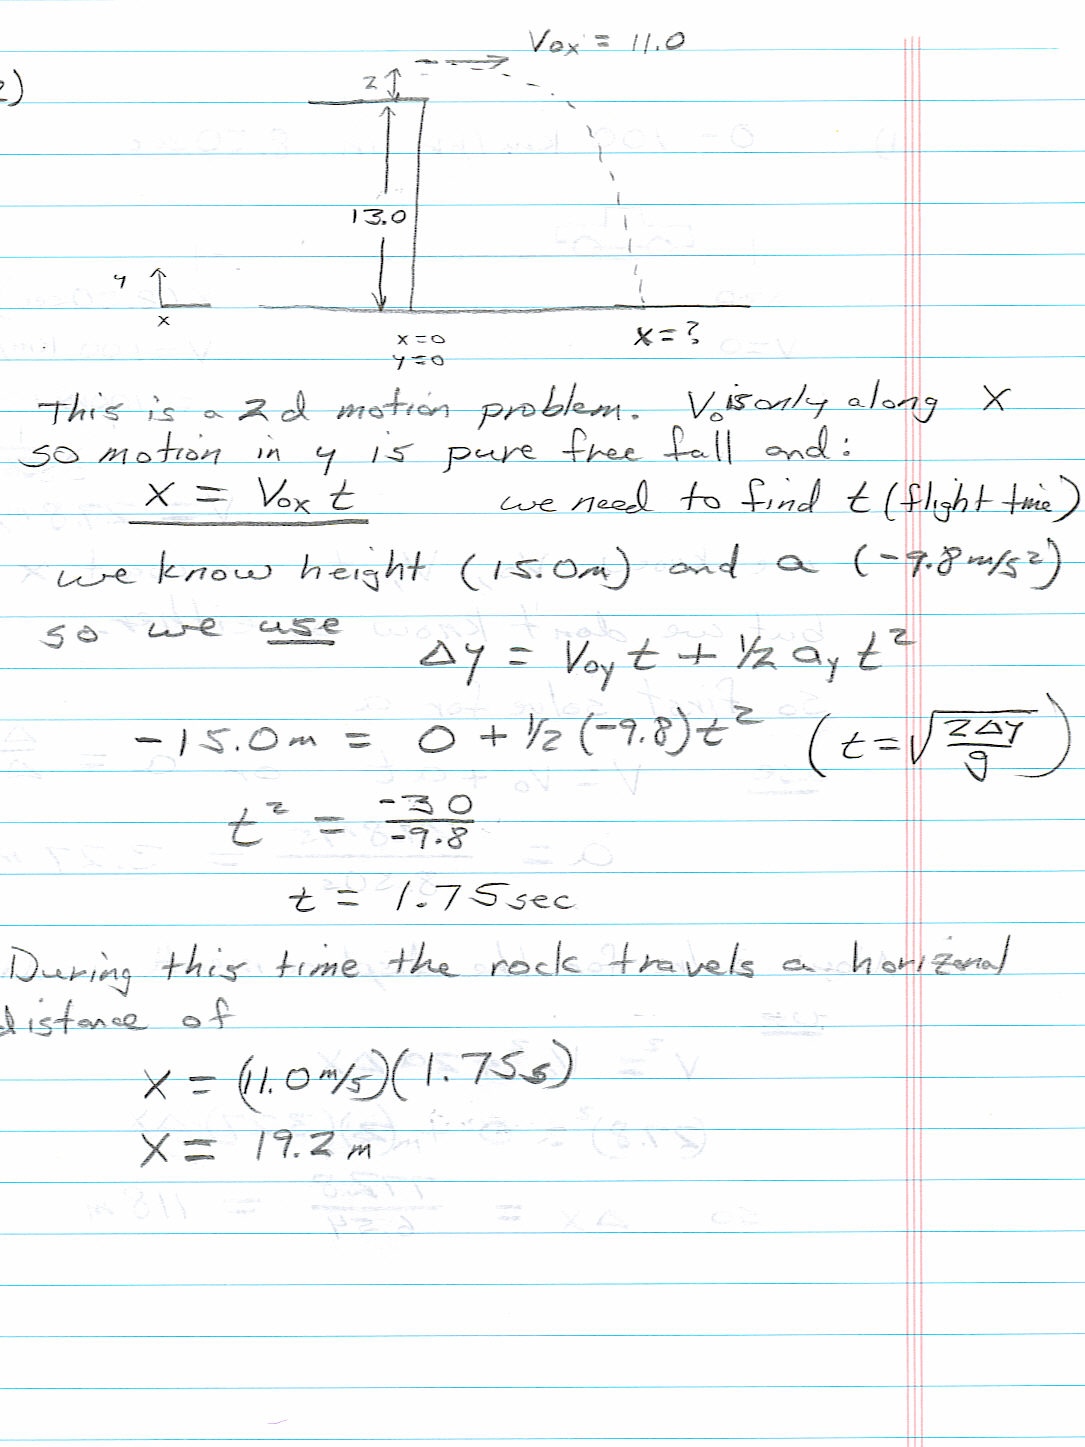 Vox = 11.0
2)
2
13.0
y
x
x=0
y=0
x=?
This is a 2d motion problem. Vo is only along X
so motion in y is pure free fall and:
X = Vox t we need to find t (flight time)
we know height (15.0m) and a (-9.8 m/s²)
so we use
Δy = Voy t + 1/2 ay t²
-15.0m = 0 + 1/2 (-9.8)t² (t = √(2Δy/g))
t² = -30/-9.8
t = 1.75 sec
During this time the rock travels a horizonal
distance of
X = (11.0 m/s)(1.75s)
X = 19.2 m